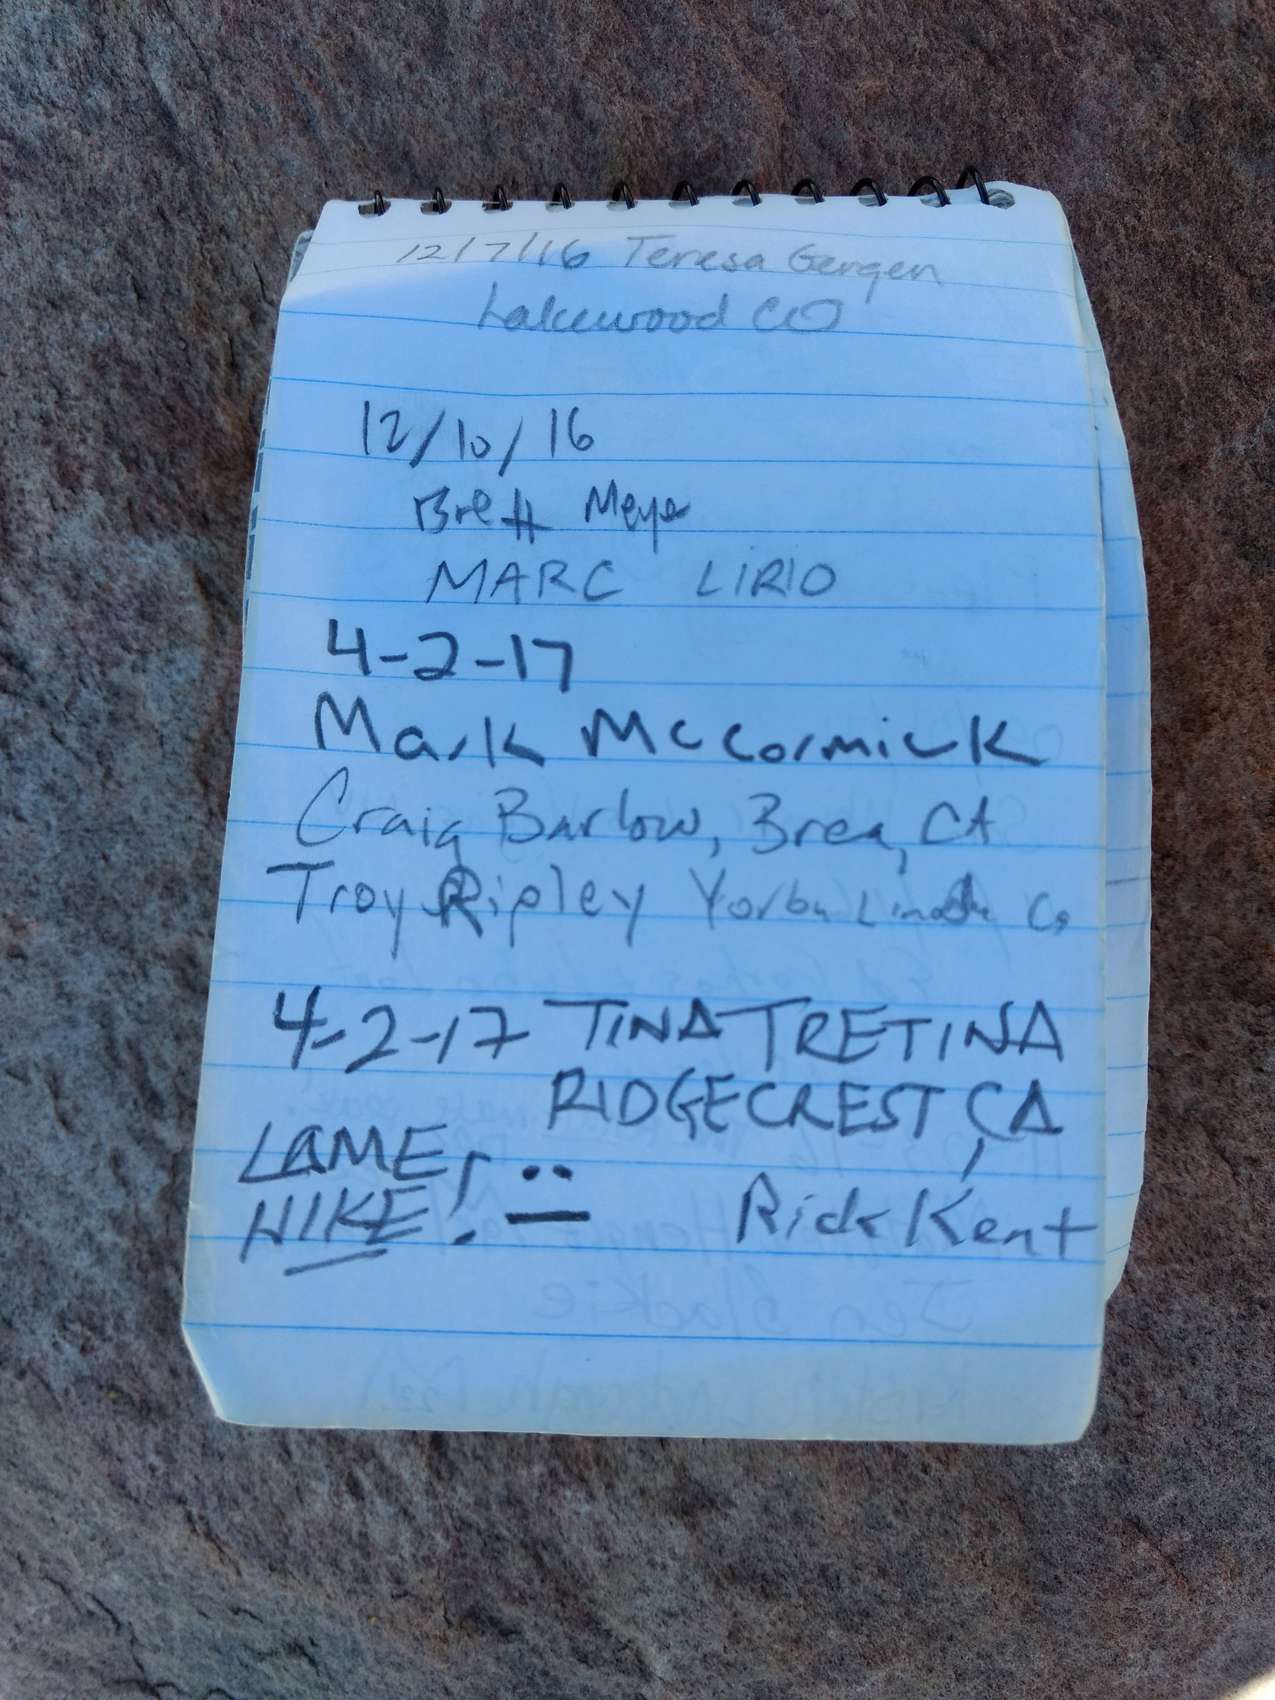 12/7/16 Teresa Gergen
Lakewood CO
12/10/16
Brett Meyer
MARC LIRIO
4-2-17
Mark McCormick
Craig Barlow, Brea, CA
Troy Ripley Yorba Linda Ca
4-2-17 TINA TRETINA
RIDGECREST, CA
LAME
HIKE!
Rick Kent
Jen Blackie